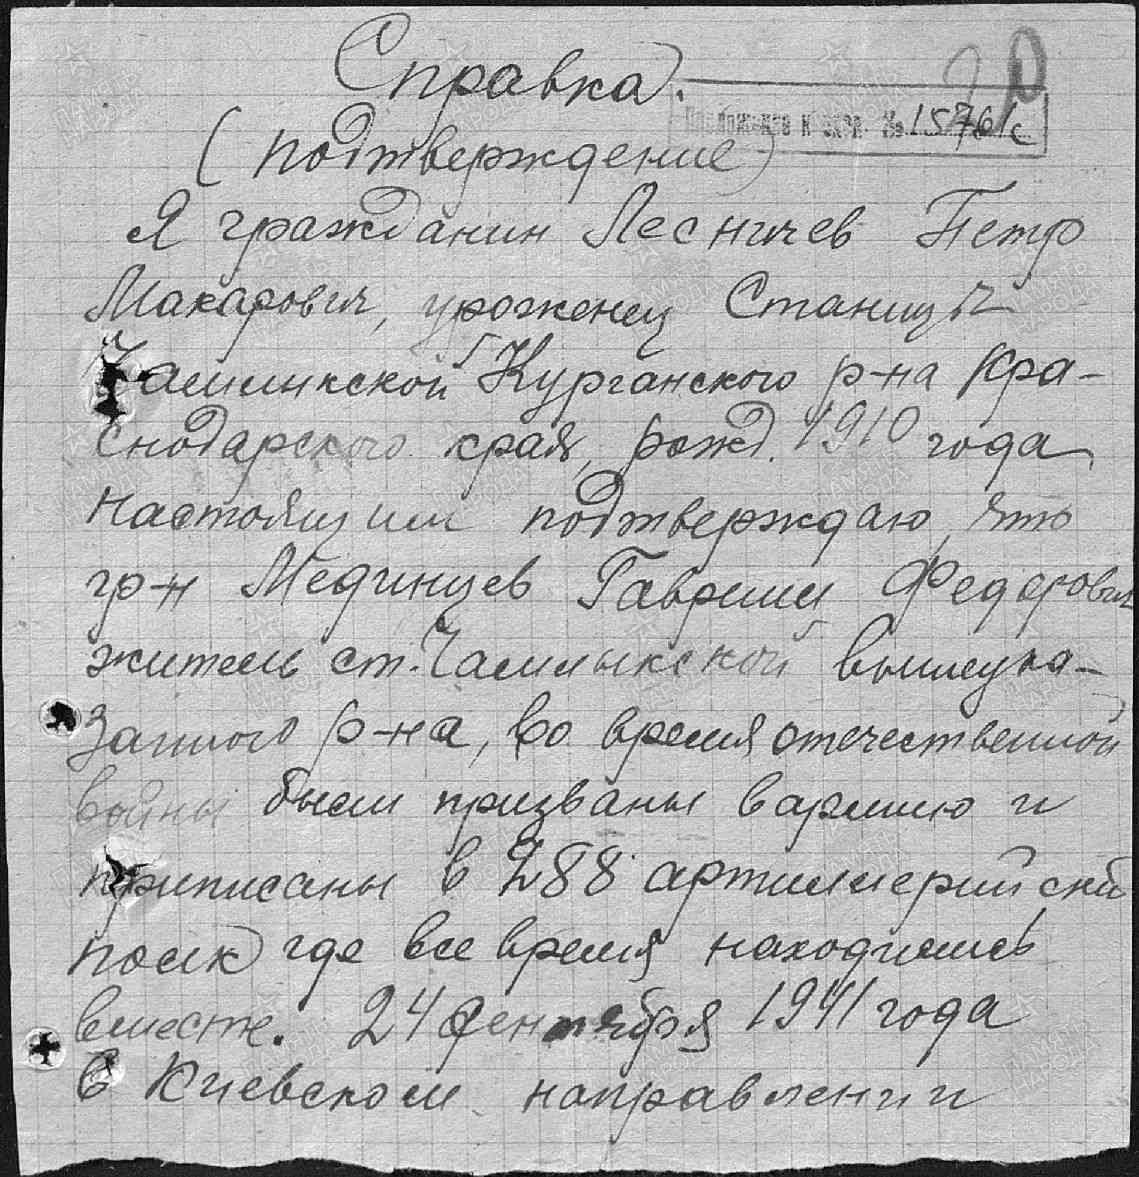 Справка.
Приложение к вход. № 15761с
(подтверждение)
Я гражданин Лесничев Петр
Макарович, уроженец Станицы
Чамлыкской Курганского р-на Кра-
снодарского края, рожд. 1910 года
настоящим подтверждаю, что
гр-н Мединцев Гавриил Федорович
житель ст. Чамлыкской вышеука-
занного р-на, во время отечественной
войны были призваны в армию и
приписаны в 288 артиллерийский
полк где все время находились
вместе. 24 сентября 1941 года
в Киевском направлении